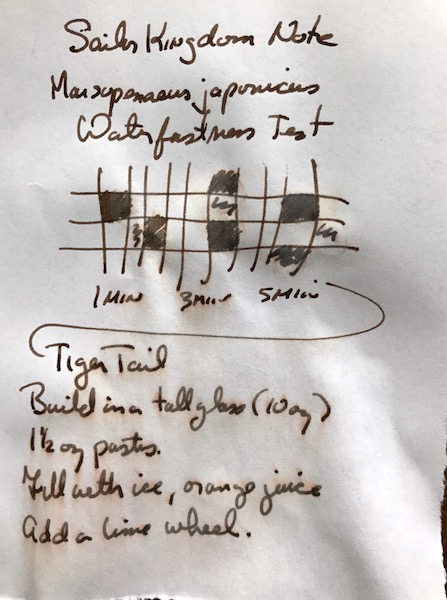 Sailor Kingdom Note
Marsupenaeus japonicus
Waterfastness Test
1 Min 3 Min 5 Min
Tiger Tail
Build in a tall glass (10 oz)
1 1/2 oz pastis.
Fill with ice, orange juice
Add a lime wheel.